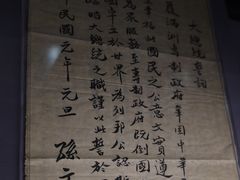 大總統誓詞
覆滿洲專制政府鞏固中華
福此國民之公意文實遵
為衆服務至專制政府既倒國
國卓立於世界為列邦公認斯
臨時大總統之職謹以此誓於
民國元年元旦 孫文